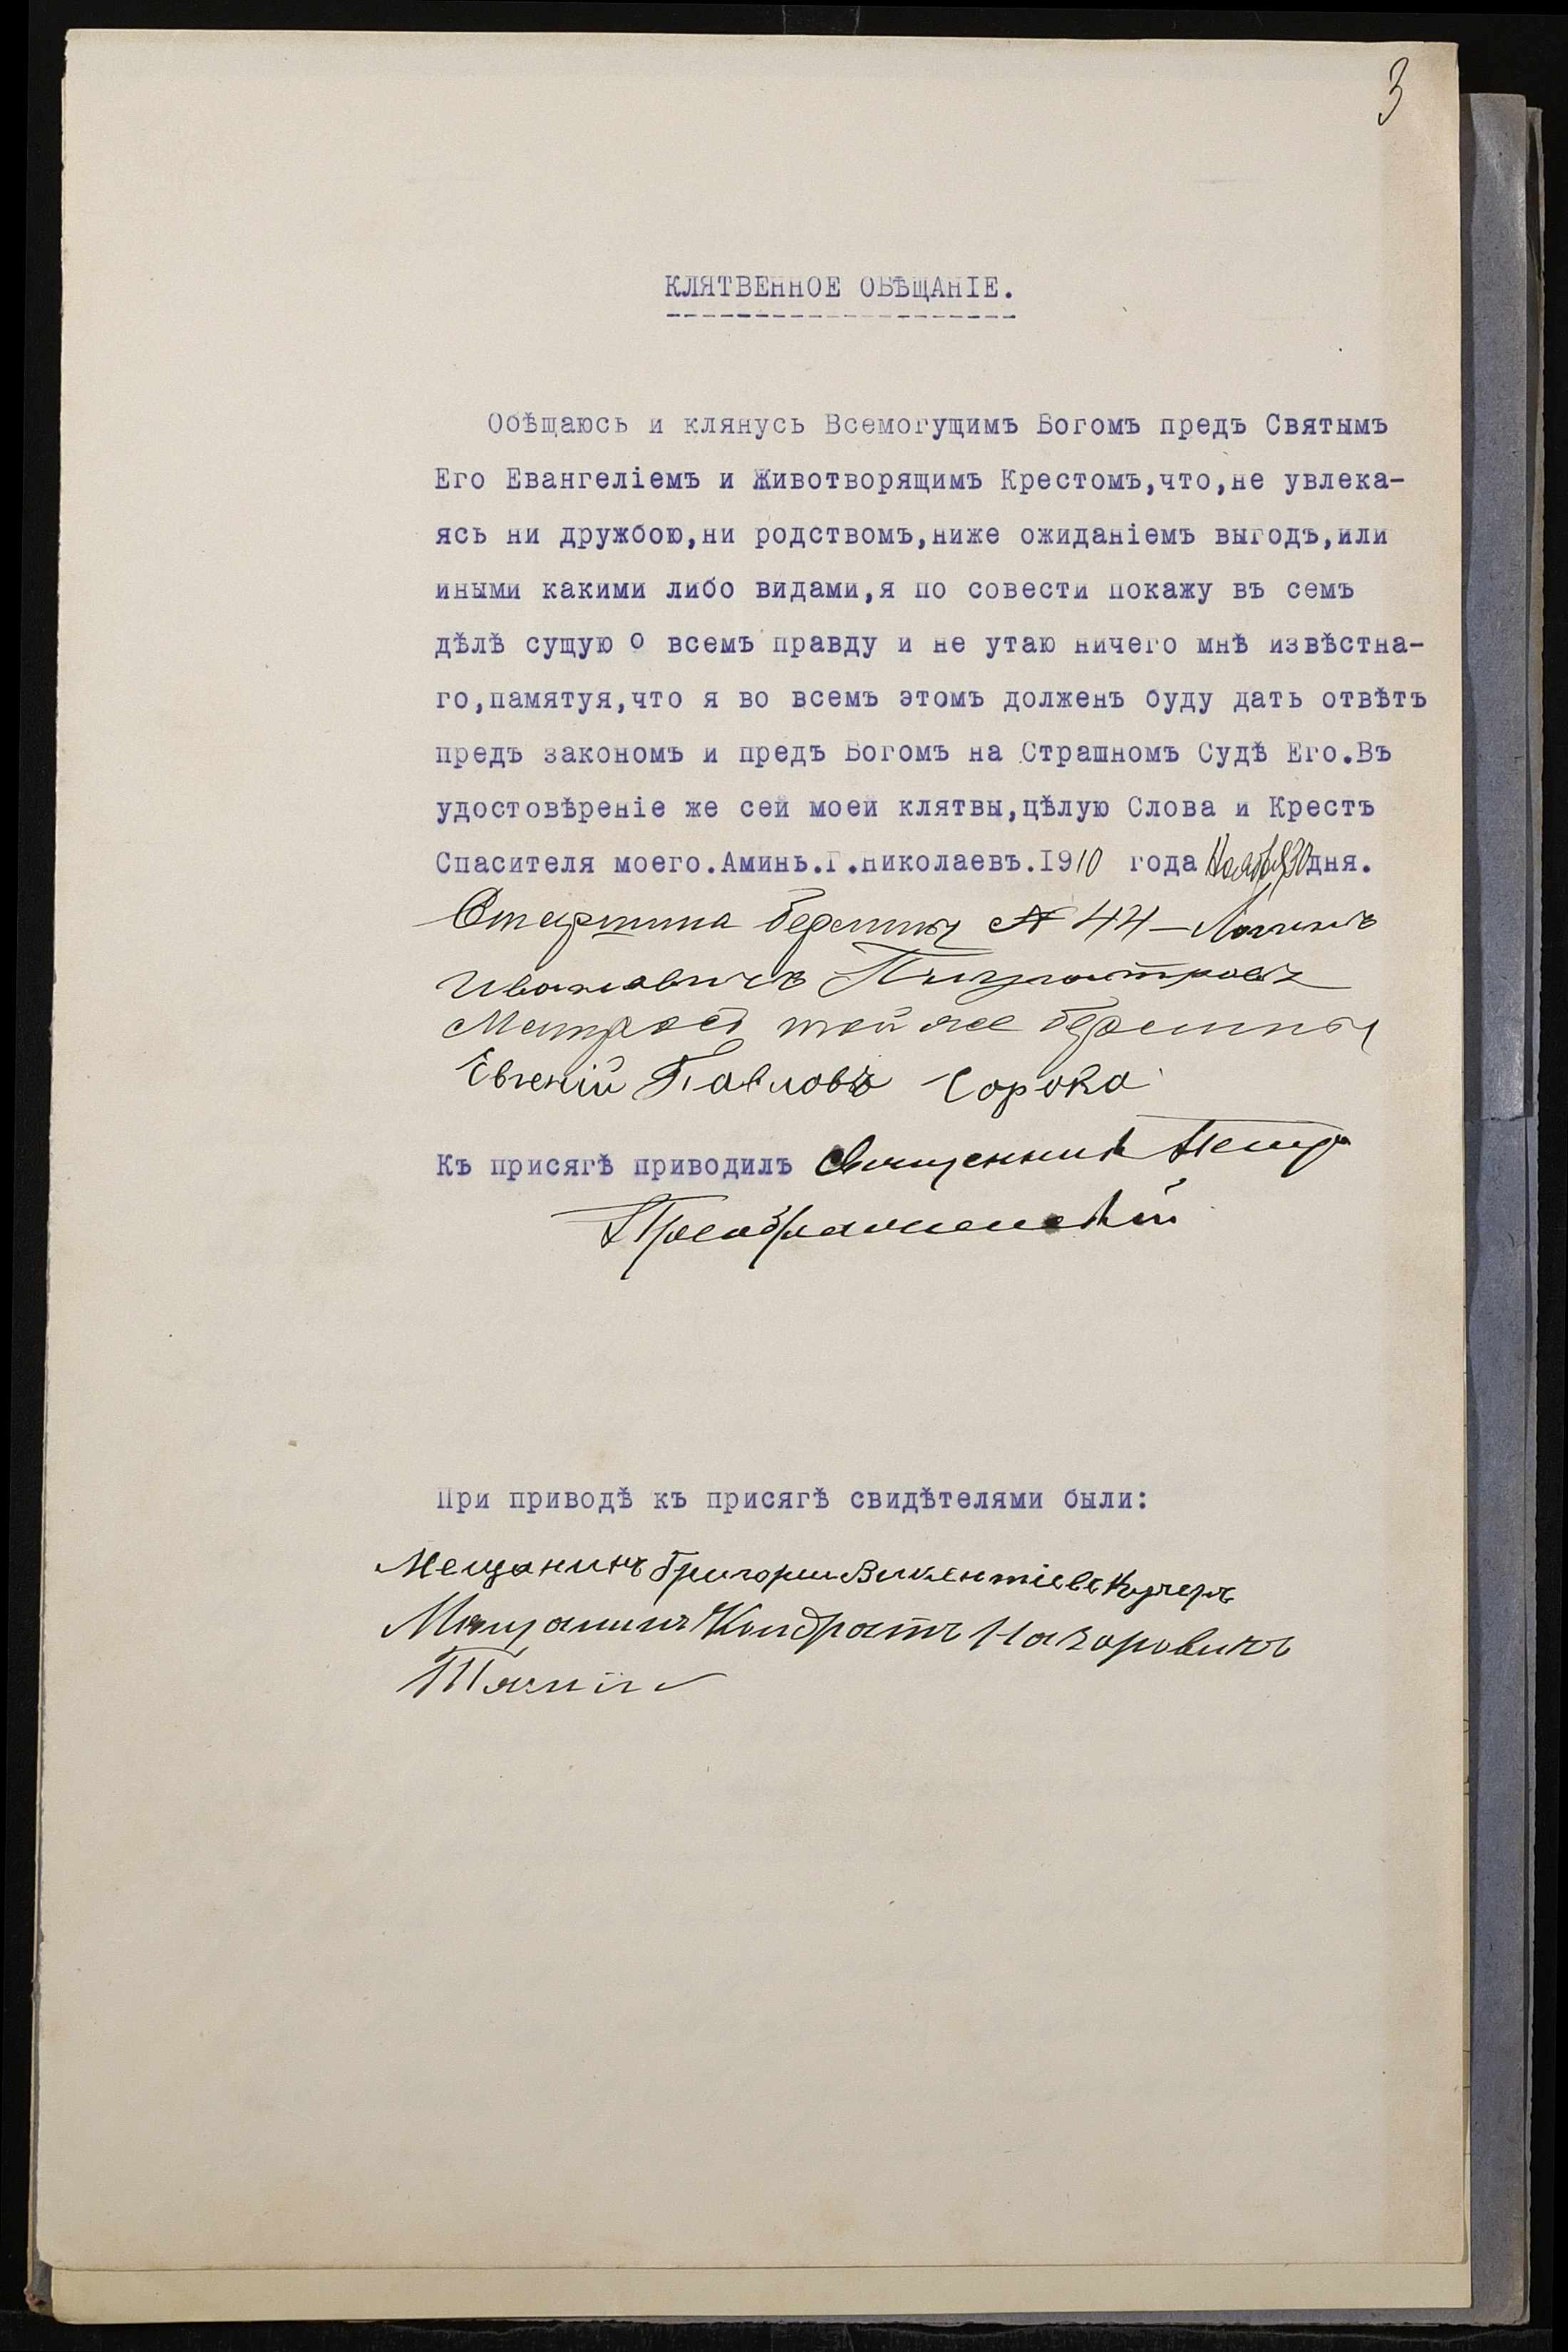 3
КЛЯТВЕННОЕ ОБѢЩАНІЕ.
Обѣщаюсь и клянусь Всемогущимъ Богомъ предъ Святымъ
Его Евангеліемъ и Животворящимъ Крестомъ,что,не увлека-
ясь ни дружбою,ни родствомъ,ниже ожиданіемъ выгодъ,или
иными какими либо видами,я по совести покажу въ семъ
дѣлѣ сущую о всемъ правду и не утаю ничего мнѣ извѣстна-
го,памятуя,что я во всемъ этомъ долженъ буду дать отвѣтъ
предъ закономъ и предъ Богомъ на Страшномъ Судѣ Его.Въ
удостовѣреніе же сей моей клятвы,цѣлую Слова и Крестъ
Спасителя моего.Аминь.Г.Николаевъ.1910 года Ноября 30 дня.
Старшина берлины № 44 — Логинъ
Ивановичъ
Матросъ той же берлины
Евгеній Павловъ Сорока
Къ присягѣ приводилъ Священникъ Петръ
Преображенскій
При приводѣ къ присягѣ свидѣтелями были:
Мещанинъ Григории Викентіевъ Кучеръ
Мещанинъ Кондратъ Назоровичъ